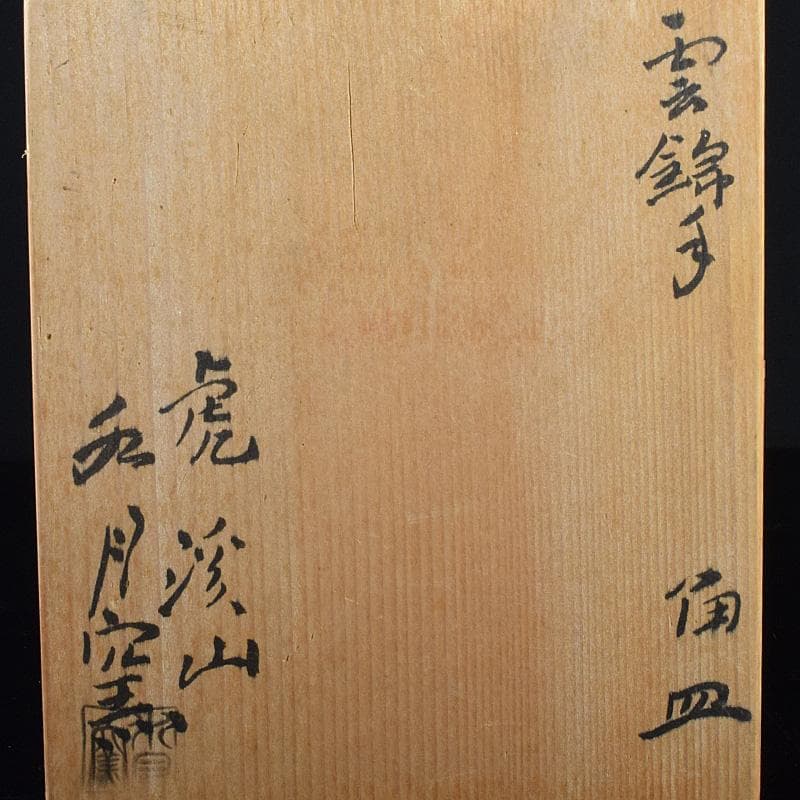 雲錦手 角皿
虎溪山
水月窯